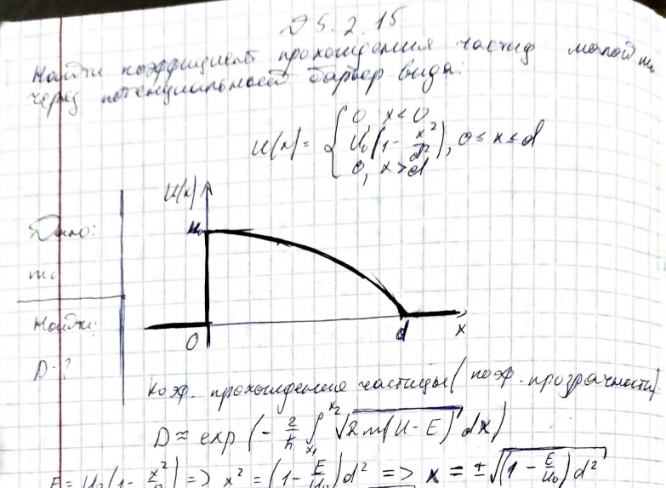 Д 5.2.15
Найти коэффициент прохождения частиц массой m₀
через потенциальный барьер вида:
0, x<0
U(x) = { U₀(1 - x²/d²), 0 ≤ x ≤ d
0, x>d
U(x)
Дано:
U₀
m₀
Найти:
D-?
0
d
x
Коэф. прохождение частицы (коэф. прозрачности)
D ≈ exp(-2/ħ ∫ₓ₁ˣ² √2m(U-E) dx)
E = U₀(1 - x²/d²) => x² = (1 - E/U₀)d² => x = ±√(1 - E/U₀)d²